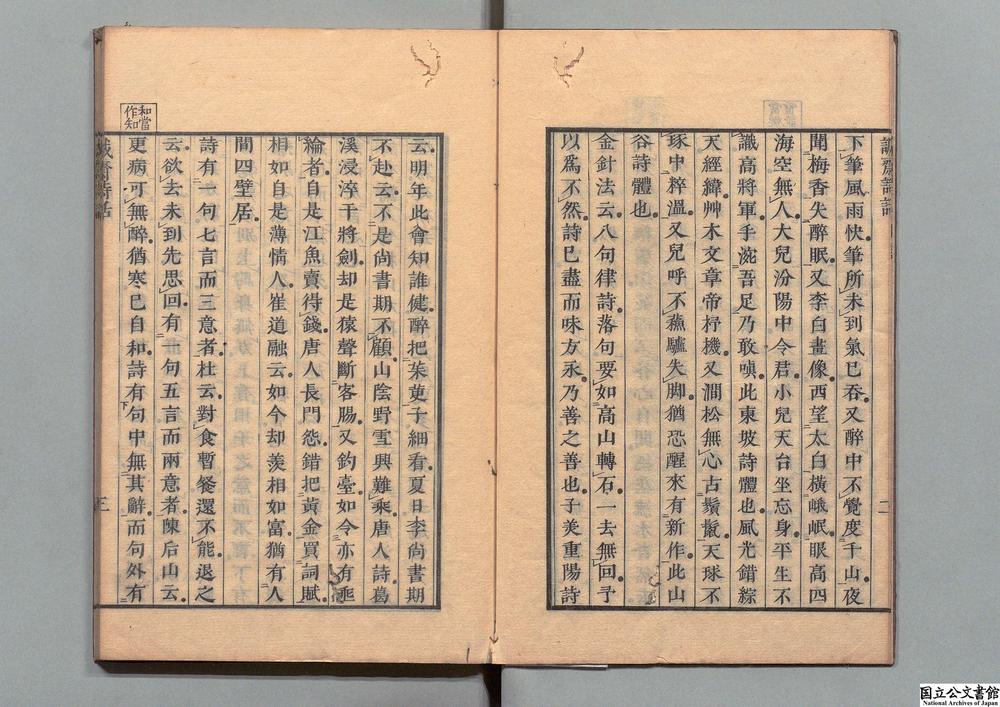 誠齋詩話
二
下筆風雨快筆所未到氣已吞又醉中不覺度千山夜
聞梅香失醉眠又李白畫像西望太白橫峨岷眼高四
海空無人大兒汾陽中令君小兒天台坐忘身平生不
識高將軍手涴吾足乃敢嗔此東坡詩體也風光錯綜
天經緯艸木文章帝杼機又澗松無心古鬚鬣天球不
琢中粹溫又兒呼不蘓驢失脚猶恐醒來有新作此山
谷詩體也
金針法云八句律詩落句要如高山轉石一去無回予
以爲不然詩已盡而味方永乃善之善也子美重陽詩
云明年此會知誰健醉把茱萸子細看夏日李尚書期
不赴云不是尚書期不顧山陰野雪興難乘唐人詩葛
溪浸淬干將劍却是猿聲斷客腸又釣臺如今亦有
綸者自是江魚賣得錢唐人長門怨錯把黃金買詞賦
相如自是薄情人崔道融云如今却羨相如富猶有人
間四壁居
詩有一句七言而三意者杜云對食暫餐還不能退之
云欲去未到先思回有一句五言而兩意者陳后山云
更病可無醉猶寒已自和詩有句中無其辭而句外有
和當
作知
誠齋詩話
三
国立公文書館
National Archives of Japan